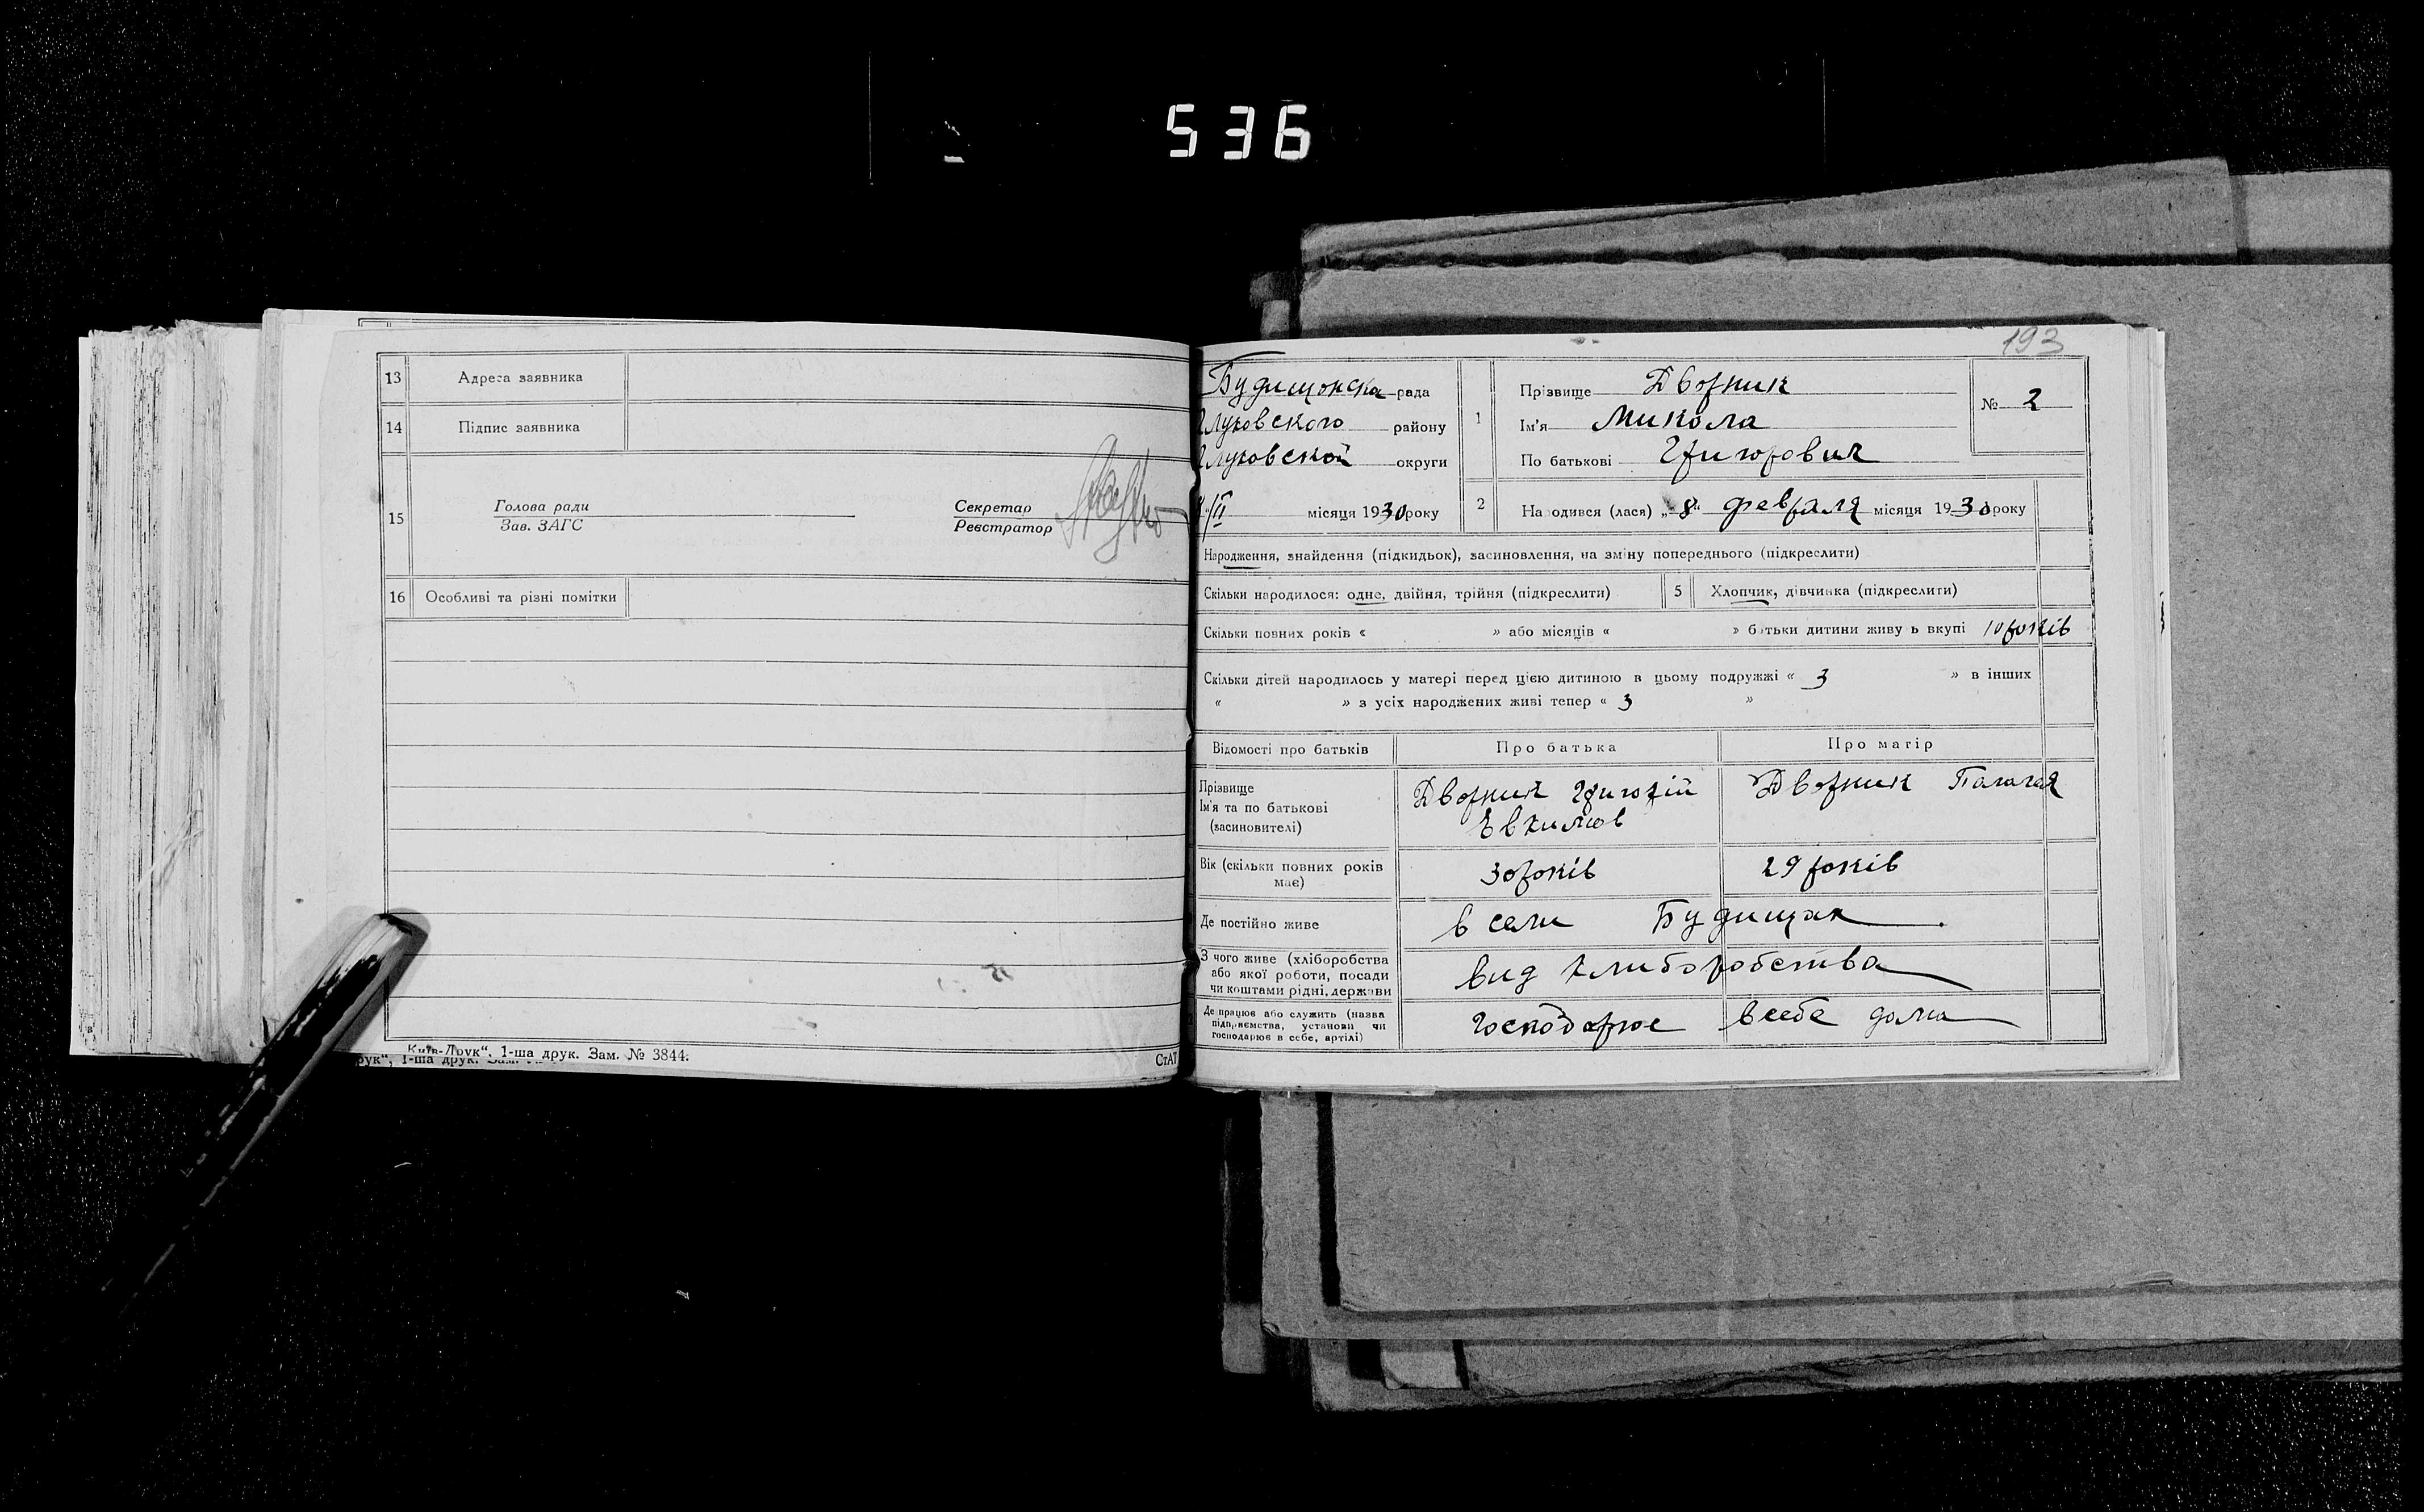 536
13 Адреса заявника
14 Підпис заявника
15 Голова ради
Зав. ЗАГС
Секретар
Реєстратор
16 Особливі та різні помітки
Київ-Друк“, 1-ша друк. Зам. № 3844.
рук“, 1-ша друк. Зам.
СтАТ
193
Будищанска рада
Глуховского району
Глуховской округи
/II місяця 1930 року
1 Прізвище Дворник
Ім'я Микола
По батькові Григорович
№ 2
2 Народився (лася) „8“ февраля місяця 1930 року
Народження, знайдення (підкидьок), засиновлення, на зміну попереднього (підкреслити)
Скільки народилося: одне, двійня, трійня (підкреслити) 5 Хлопчик, дівчинка (підкреслити)
Скільки повних років « » або місяців « » батьки дитини живуть вкупі 10 років
Скільки дітей народилось у матері перед цією дитиною в цьому подружжі « 3 » в інших
« » з усіх народжених живі тепер « 3 »
Відомості про батьків Про батька Про матір
Прізвище
Ім'я та по батькові
(засиновителі)
Дворник Григорій
Дворник
Вік (скільки повних років
має)
30 років 29 років
Де постійно живе в сели Будищах
З чого живе (хліборобства
або якої роботи, посади
чи коштами рідні, держави
вид хлиборобства
Де працює або служить (назва
підприємства, установи чи
господарює в себе, артілі)
господарює всебе дома